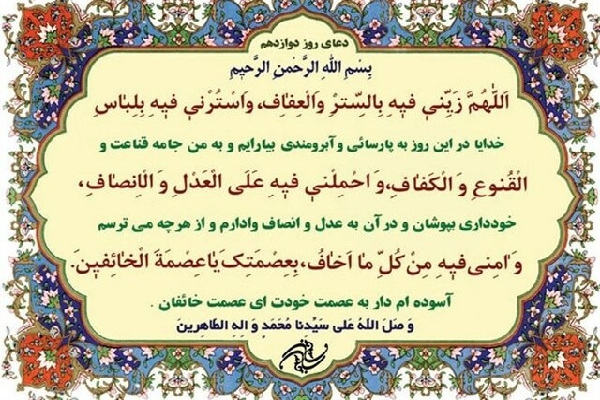 دعای روز دوازدهم
بِسْمِ اللهِ الرَّحْمنِ الرَّحیمِ
اَللّهُمَّ زَیِّنّی فیهِ بِالسِّتْرِ وَالْعِفافِ، وَاسْتُرْنی فیهِ بِلِباسِ
خدایا در این روز به پارسائی و آبرومندی بیارایم و به من جامه قناعت و
الْقُنوعِ وَ الْکَفافِ،وَ احْمِلْنی فیهِ عَلَی الْعَدْلِ وَ الْانصافِ،
خودداری بپوشان و درآن به عدل و انصاف وادارم و از هرچه می ترسم
وَ امِنی فیهِ مِنْ کُلِّ ما اَخافُ، بِعِصْمَتِکَ یا عِصْمَةَ الْخائِفینَ.
آسوده ام دار به عصمت خودت ای عصمت خائفان .
وَ صَلَ اللهُ عَلی سَیِّدِنا مُحَمَدٍ وَ الِهِ الطّاهِرینَ